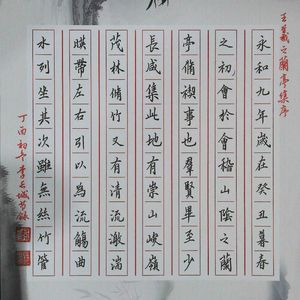 王羲之蘭亭集序
永和九年歲在癸丑暮春
之初會於會稽山陰之蘭
亭脩禊事也羣賢畢至少
長咸集此地有崇山峻嶺
茂林脩竹又有清流激湍
暎帶左右引以為流觴曲
水列坐其次雖無絲竹管
丁酉初冬